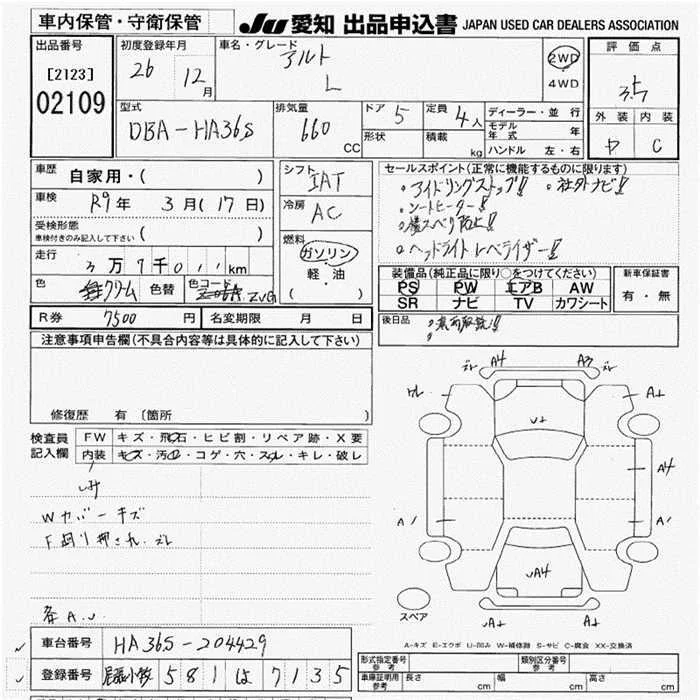 車内保管・守衛保管
JU 愛知 出品申込書 JAPAN USED CAR DEALERS ASSOCIATION
出品番号
[2123]
02109
初度登録年月
26 12 月
車名・グレード
アルト
L
2WD
4WD
評価点
3.5
外装 内装
C
型式
DBA-HA36S
排気量
660 CC
ドア 5
形状
定員 4人
積載 kg
ディーラー・並行
モデル年式 年
ハンドル 左・右
車歴
自家用・( )
車検
R9年 3月(17日)
受検形態
車検付きのみ記入して下さい ( )
走行
3万7千011km
色 クリーム
色替
色コード ZVG
シフト
IAT
冷房
AC
燃料
ガソリン
軽・油
( )
セールスポイント(正常に機能するものに限ります)
。アイドリングストップ!! 。社外ナビ!!
。シートヒーター!!
。横スベリ防止!!
。ヘッドライトレベライザー!!
装備品(純正品に限り○をつけてください)
PS PW エアB AW
SR ナビ TV カワシート
新車保証書
有・無
R券 7500 円
名変期限 月 日
後日品
注意事項申告欄(不具合内容等は具体的に記入して下さい)
修復歴 有 [箇所 ]
検査員記入欄
FW キズ・飛石・ヒビ割・リペア跡・X要
内装 キズ・汚レ・コゲ・穴・スレ・キレ・破レ
Wカバーキズ
F廻り押され・ズレ
各A.U
ズレ A4 A3 ズレ
A+
U+
A4
A1 A1
UA4
UA+ A+
スペア
A-キズ E-エクボ U-凹み W-補修跡 S-サビ C-腐食 XX-交換済
車台番号 HA36S-204429
登録番号 尾張小牧 581 は 7135
形式指定番号 参考
類別区分番号 参考
車庫証明用 参考 長さ cm 幅 cm 高さ cm